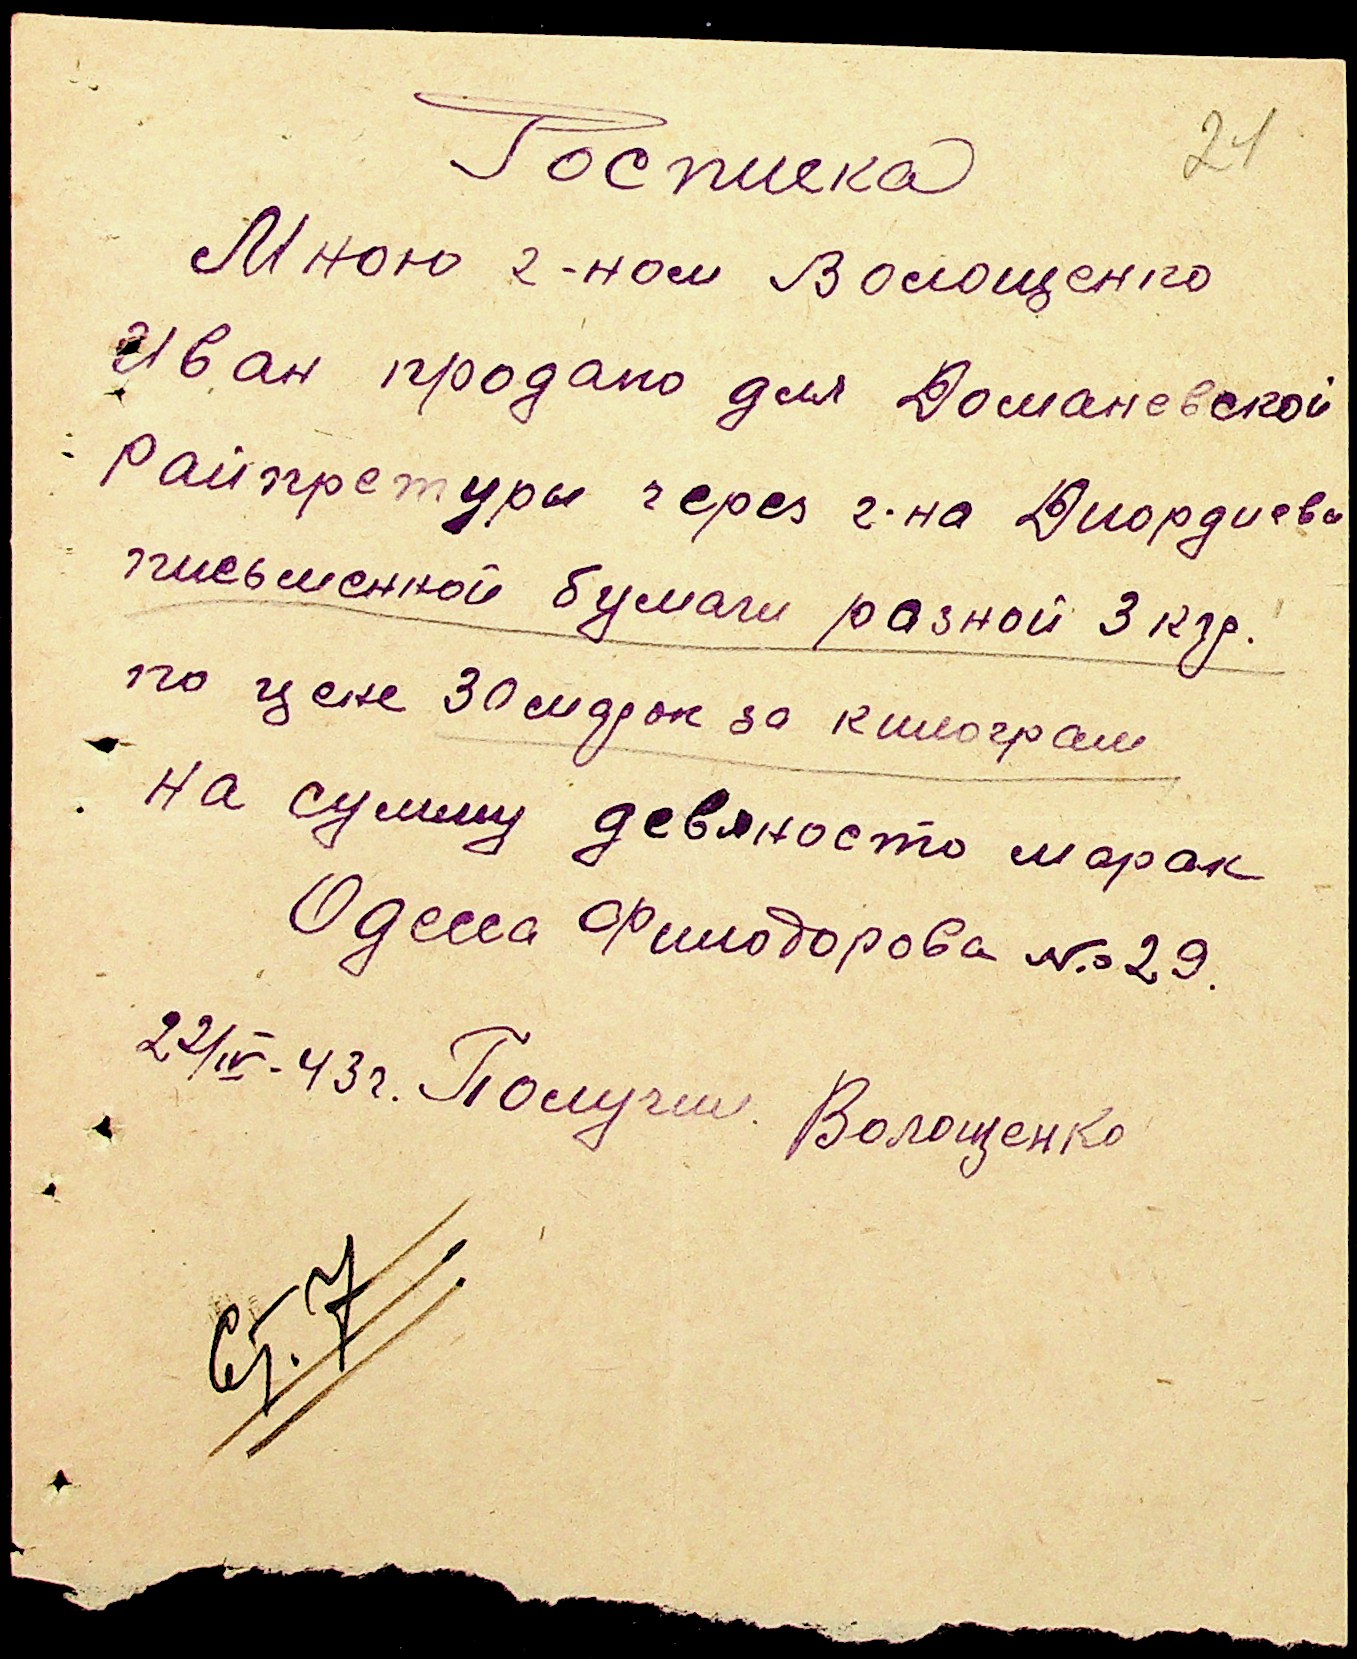 21
Росписка
Мною г-ном Волощенко
Иван продано для Доманевской
Райпретуры через г-на Диордиева
писъменной бумаги разной 3 кгр.
по цене 30 марок за килограм
на сумму девяносто марак
Одесса Филодорова № 29.
22/IV-43г. Получил. Волощенко